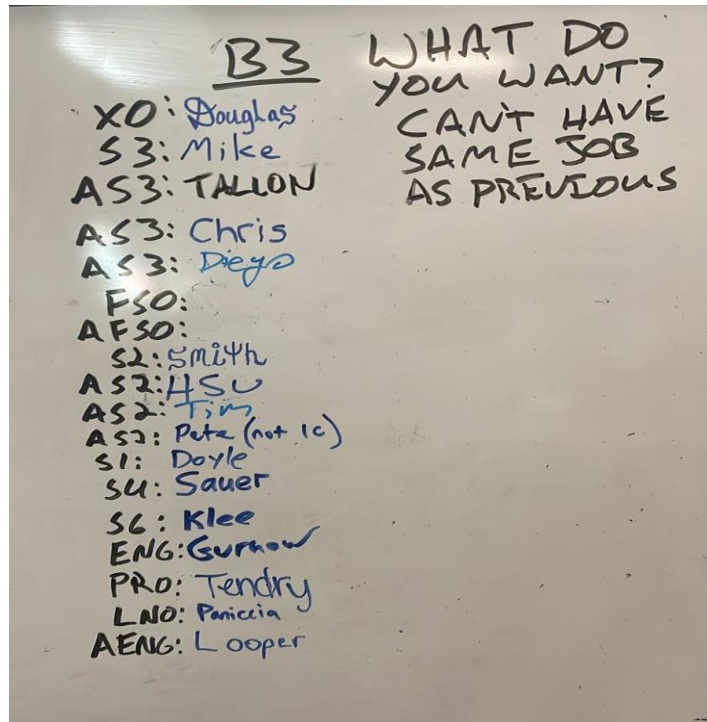 B3
XO: Douglas
S3: Mike
AS3: TALLON
AS3: Chris
AS3: Diego
FSO:
AFSO:
S2: Smith
AS2: HSU
AS2: Tim
AS2: Pete (not IC)
S1: Doyle
S4: Sauer
S6: Klee
ENG: Gurnow
PRO: Tendry
LNO: Paniccia
AENG: Looper
WHAT DO
YOU WANT?
CAN'T HAVE
SAME JOB
AS PREVIOUS